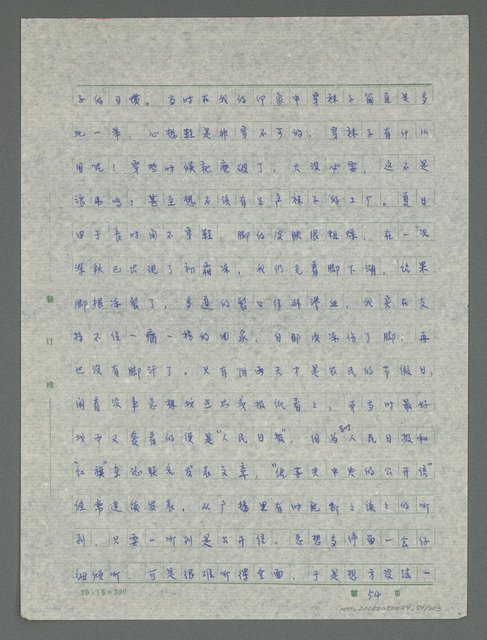 子的习惯。当时在我的印象中穿袜子简直是多
此一举，心想鞋是非穿不可的，穿袜子有什么
用呢！穿些时候就要破了，大没必要，这不是
浪费吗？甚至想不该有生产袜子的工厂。夏日
由于长时间不穿鞋，脚的皮肤很粗燥，在一次
深秋已出现了初霜冻，我们光着脚下湖，结果
脚被冻裂了，多道的裂口往外渗血，我实在支
持不住一瘸一拐的回家，自那次冻伤了脚，再
也没有脚汗了。只有阴雨天才是农民的节假日，
闲着没事总想找点书报纸看看，而当时最好
找而又爱看的便是"人民日报"，因为当时人民日报和
"红旗"杂志联名发表文章，"给苏共中央的公开信"
经常连续发表。从广播里有时能断断续续的听
到，只要一听到是公开信，总想多停留一会仔
细倾听，可是很难听得全面，于是想方设法一
装
订
线
20×15=300
第 54 页
NMTL20050050044.54/203